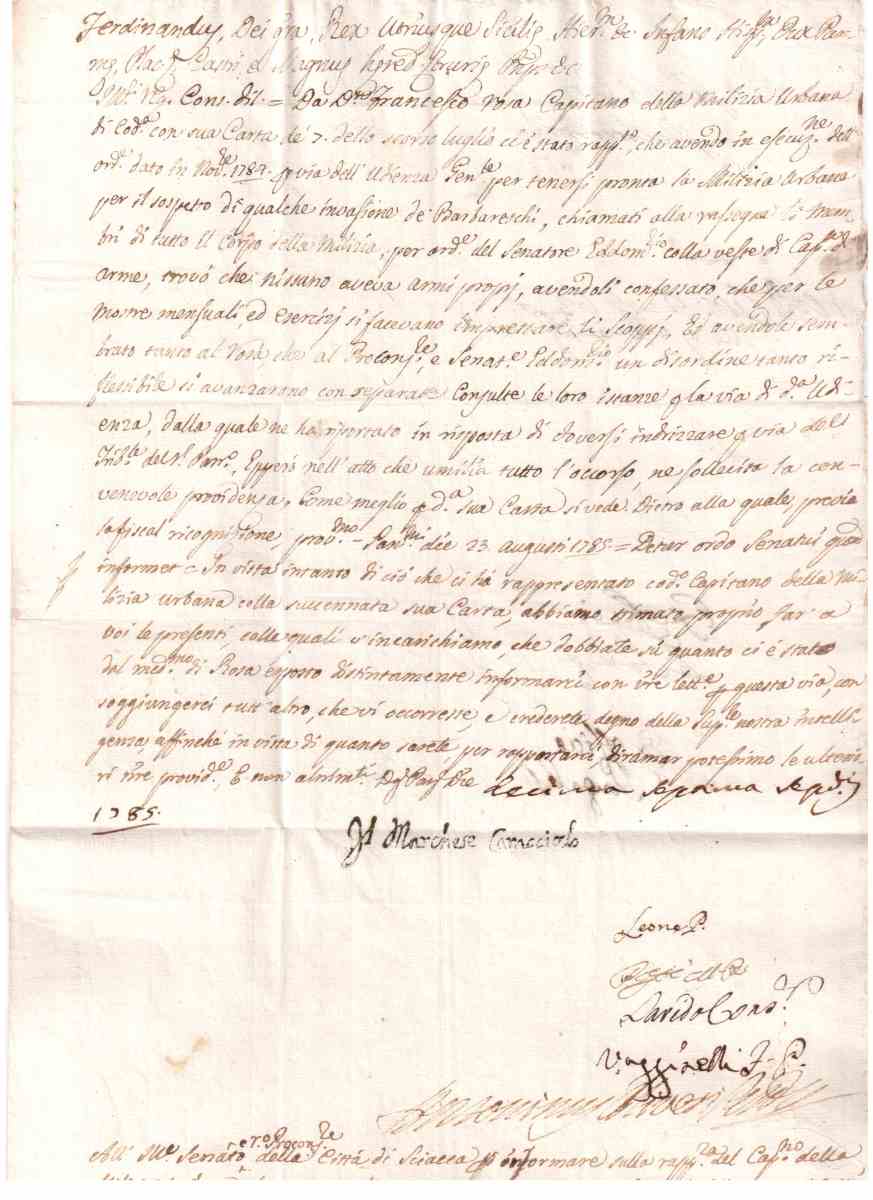 Ferdinandus, Dei gra, Rex Utriusque Sicilie, Hier.m &c Infans Hisp.a, Dux Par-
me, Plac.e Castri, & Magnus hered. Etrurie Pnps &c
Cons. dil. = Da D.n Francesco Rosa Capitano della Milizia Urbana
di Cod.a con sua Carta de' 7. dello scorso luglio ci è stato rapp.to, che avendo in esecuz.ne dell'
ord.e dato in Nov.e 1784. p via dell'Udienza Gen.le per tenersi pronta la Milizia Urbana
per il sospetto di qualche invasione de' Barbareschi, chiamati alla rassegna li mem-
bri di tutto il Corpo della Milizia, per ord.e del Senatore Eddom.o colla veste di Cap.n d'
arme, trovò che nissuno aveva armi proprj, avendoli confessato, che per le
mostre mensuali, ed esercizj si facevano impressare li Scoppj, Ed avendole sem-
brato tanto al Rosa, che al Procons.le, e Senat.e Eddom.o un disordine tanto ri-
flessibile si avanzarono con separate Consulte le loro istanze p la via di d.a Udi-
enza, dalla quale ne ha riportato in risposta di doversi indrizzare p via del
Trib.le del R. Patr.o, Epperò nell'atto che umilia tutto l'occorso, ne sollecita la con-
venevole providenza, Come meglio p d.a sua Carta si vede. Dietro alla quale, previa
la fiscal ricognizione, prov.mo - Pan.mi die 23. augusti 1785. = Detur ordo Senatui quod
informet = In vista intanto di ciò che ci ha rappresentato cod.o Capitano della Mi-
lizia Urbana colla succennata sua Carta, abbiamo stimato proprio far a
voi le presenti, colle quali v'incarichiamo, che dobbiate sù quanto ci è stato
dal med.mo di Rosa esposto distintamente informarci con vre lett.e p questa via, con
soggiungerci tutt'altro, che vi occorresse, e crederete degno della Sup.le nostra intelli-
genza, affinché in vista di quanto sarete per rapportarci, diramar potessimo le ulterio-
ri nre provid.e, E non altrim.ti Dat. Pan. Die decima septima Sept.
1785.
Il Marchese Caracciolo
Leone P.
Davido Cons.
Vaggi F. P.
All' Ill.e Senato, e R.o Procons.le della Città di Sciacca p informare sulla rapp.za del Cap.no della